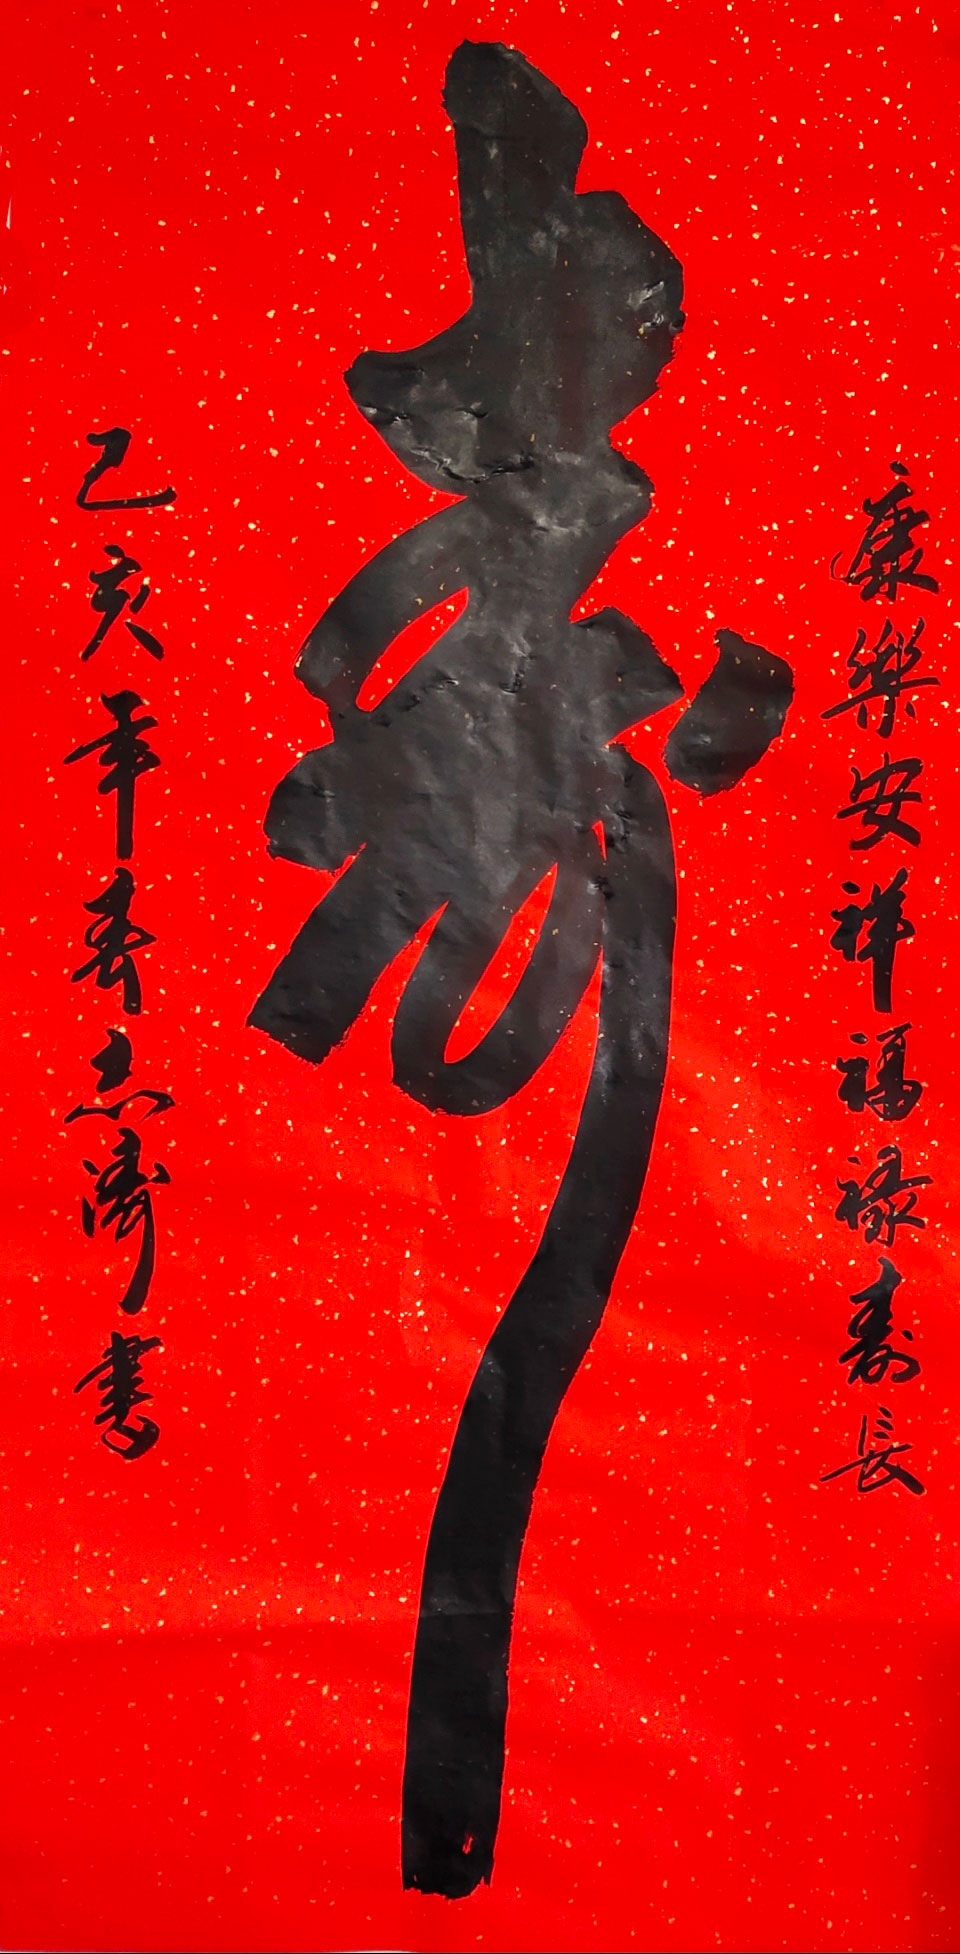 康樂安祥福禄壽長
寿
己亥年春志濤書